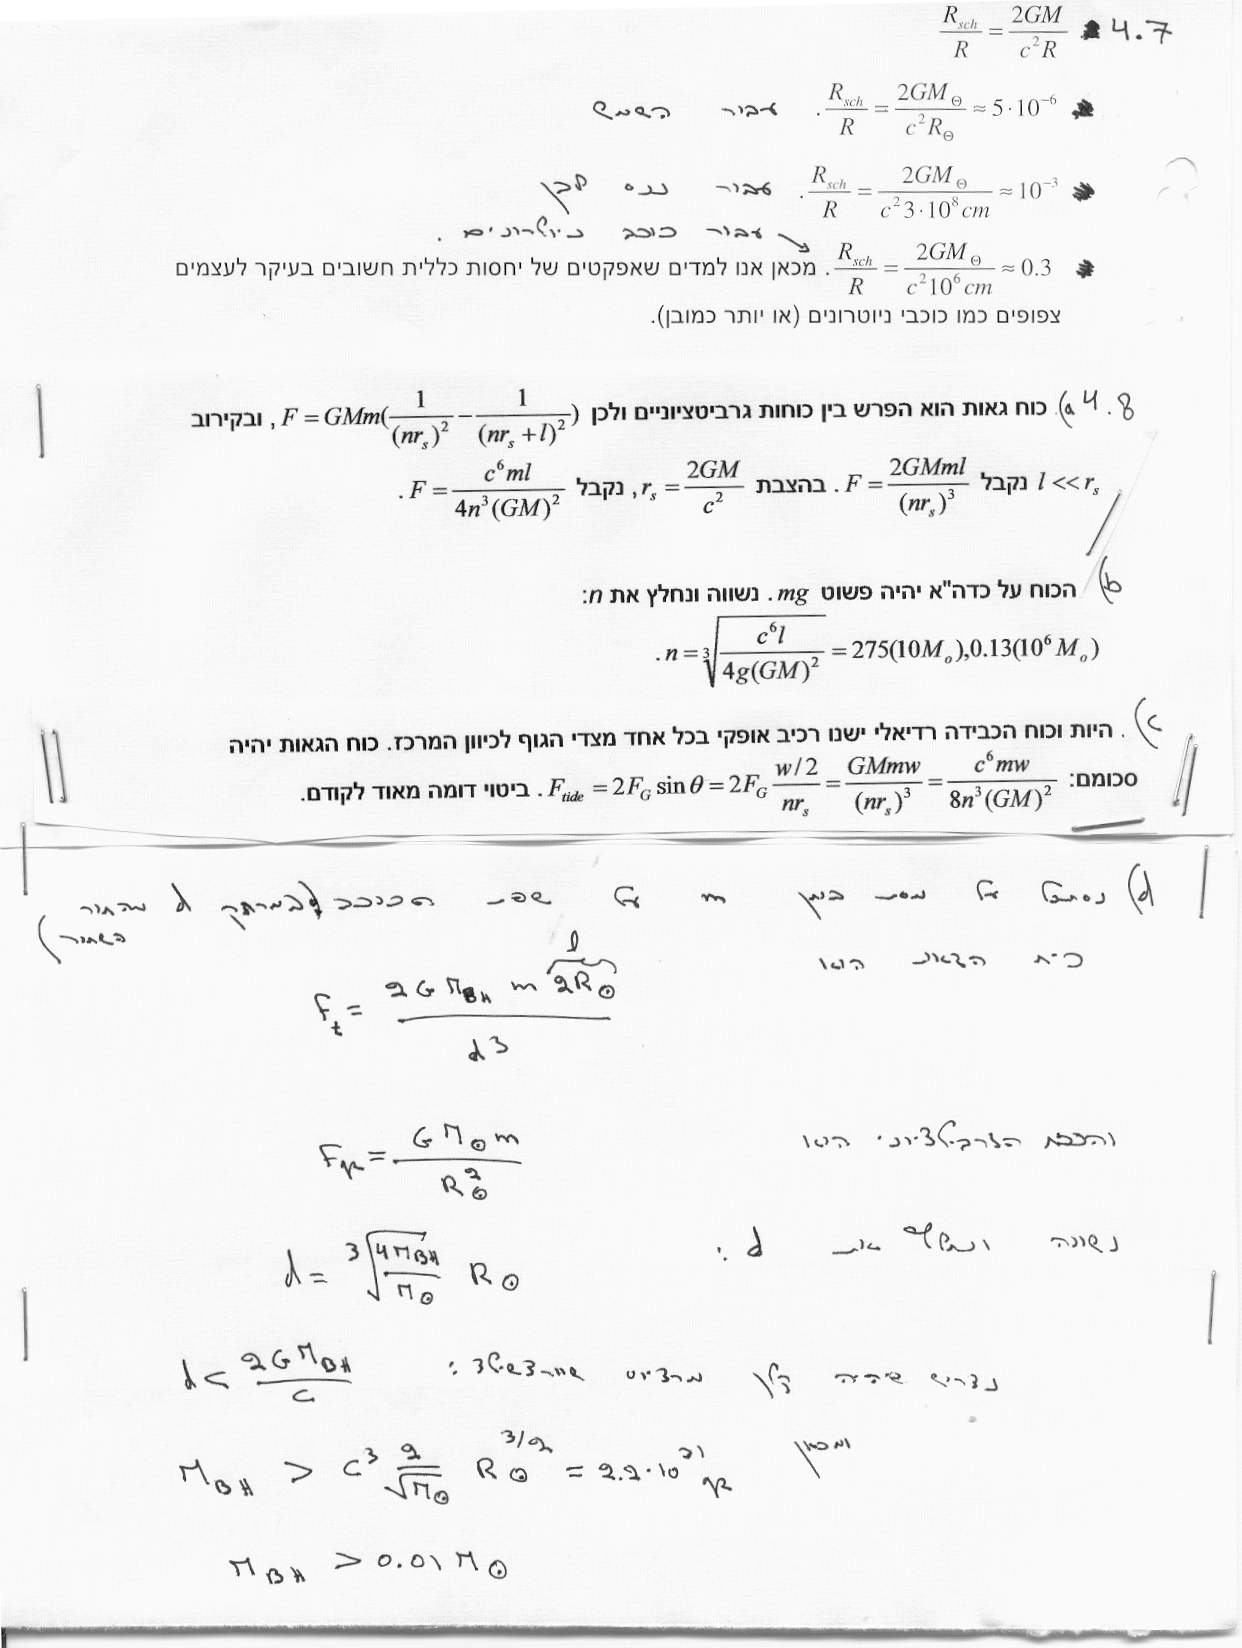 4.7 $\frac{R_{sch}}{R} = \frac{2GM}{c^2 R}$
$\frac{R_{sch}}{R} = \frac{2GM_\Theta}{c^2 R_\Theta} \approx 5 \cdot 10^{-6}$. עבור השמש
$\frac{R_{sch}}{R} = \frac{2GM_\Theta}{c^2 3 \cdot 10^8 cm} \approx 10^{-3}$. עבור ננס לבן
עבור כוכב ניוטרונים.
$\frac{R_{sch}}{R} = \frac{2GM_\Theta}{c^2 10^6 cm} \approx 0.3$. מכאן אנו למדים שאפקטים של יחסות כללית חשובים בעיקר לעצמים
צפופים כמו כוכבי ניוטרונים (או יותר כמובן).
4.8 a) כוח גאות הוא הפרש בין כוחות גרביטציוניים ולכן $F = GMm(\frac{1}{(nr_s)^2} - \frac{1}{(nr_s + l)^2})$, ובקירוב
$l << r_s$ נקבל $F = \frac{2GMml}{(nr_s)^3}$. בהצבת $r_s = \frac{2GM}{c^2}$, נקבל $F = \frac{c^6 ml}{4n^3(GM)^2}$.
b) הכוח על כדה"א יהיה פשוט $mg$. נשווה ונחלץ את $n$:
$n = \sqrt[3]{\frac{c^6 l}{4g(GM)^2}} = 275(10M_o), 0.13(10^6 M_o)$.
c) היות וכוח הכבידה רדיאלי ישנו רכיב אופקי בכל אחד מצדי הגוף לכיוון המרכז. כוח הגאות יהיה
סכומם: $F_{tide} = 2F_G \sin\theta = 2F_G \frac{w/2}{nr_s} = \frac{GMmw}{(nr_s)^3} = \frac{c^6 mw}{8n^3(GM)^2}$. ביטוי דומה מאוד לקודם.
d) נסתכל על מסת בוחן m על שפת הכוכב (במרחק d מהחור
השחור)
כוח הגאות הוא
$F_t = \frac{2GM_{BH} m \overbrace{2R_\odot}^{l}}{d^3}$
והכבח הגרביטציוני הוא
$F_{gr} = \frac{GM_\odot m}{R_\odot^2}$
נשווה ונחלץ את d:
$d = \sqrt[3]{\frac{4M_{BH}}{M_\odot}} R_\odot$
נדרוש שיהיה קטן מרדיוס שוורצשילד: $d < \frac{2GM_{BH}}{c}$
ומכאן
$M_{BH} > c^3 \frac{2}{\sqrt{M_\odot}} R_\odot^{3/2} = 2.2 \cdot 10^{31} gr$
$M_{BH} > 0.01 M_\odot$